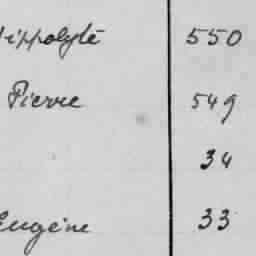 Hippolyte 550
Pierre 549
34
Eugène 33